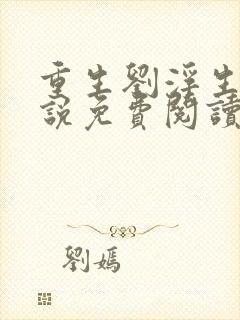 重生劉淫生
說免費閱讀
劉嫣